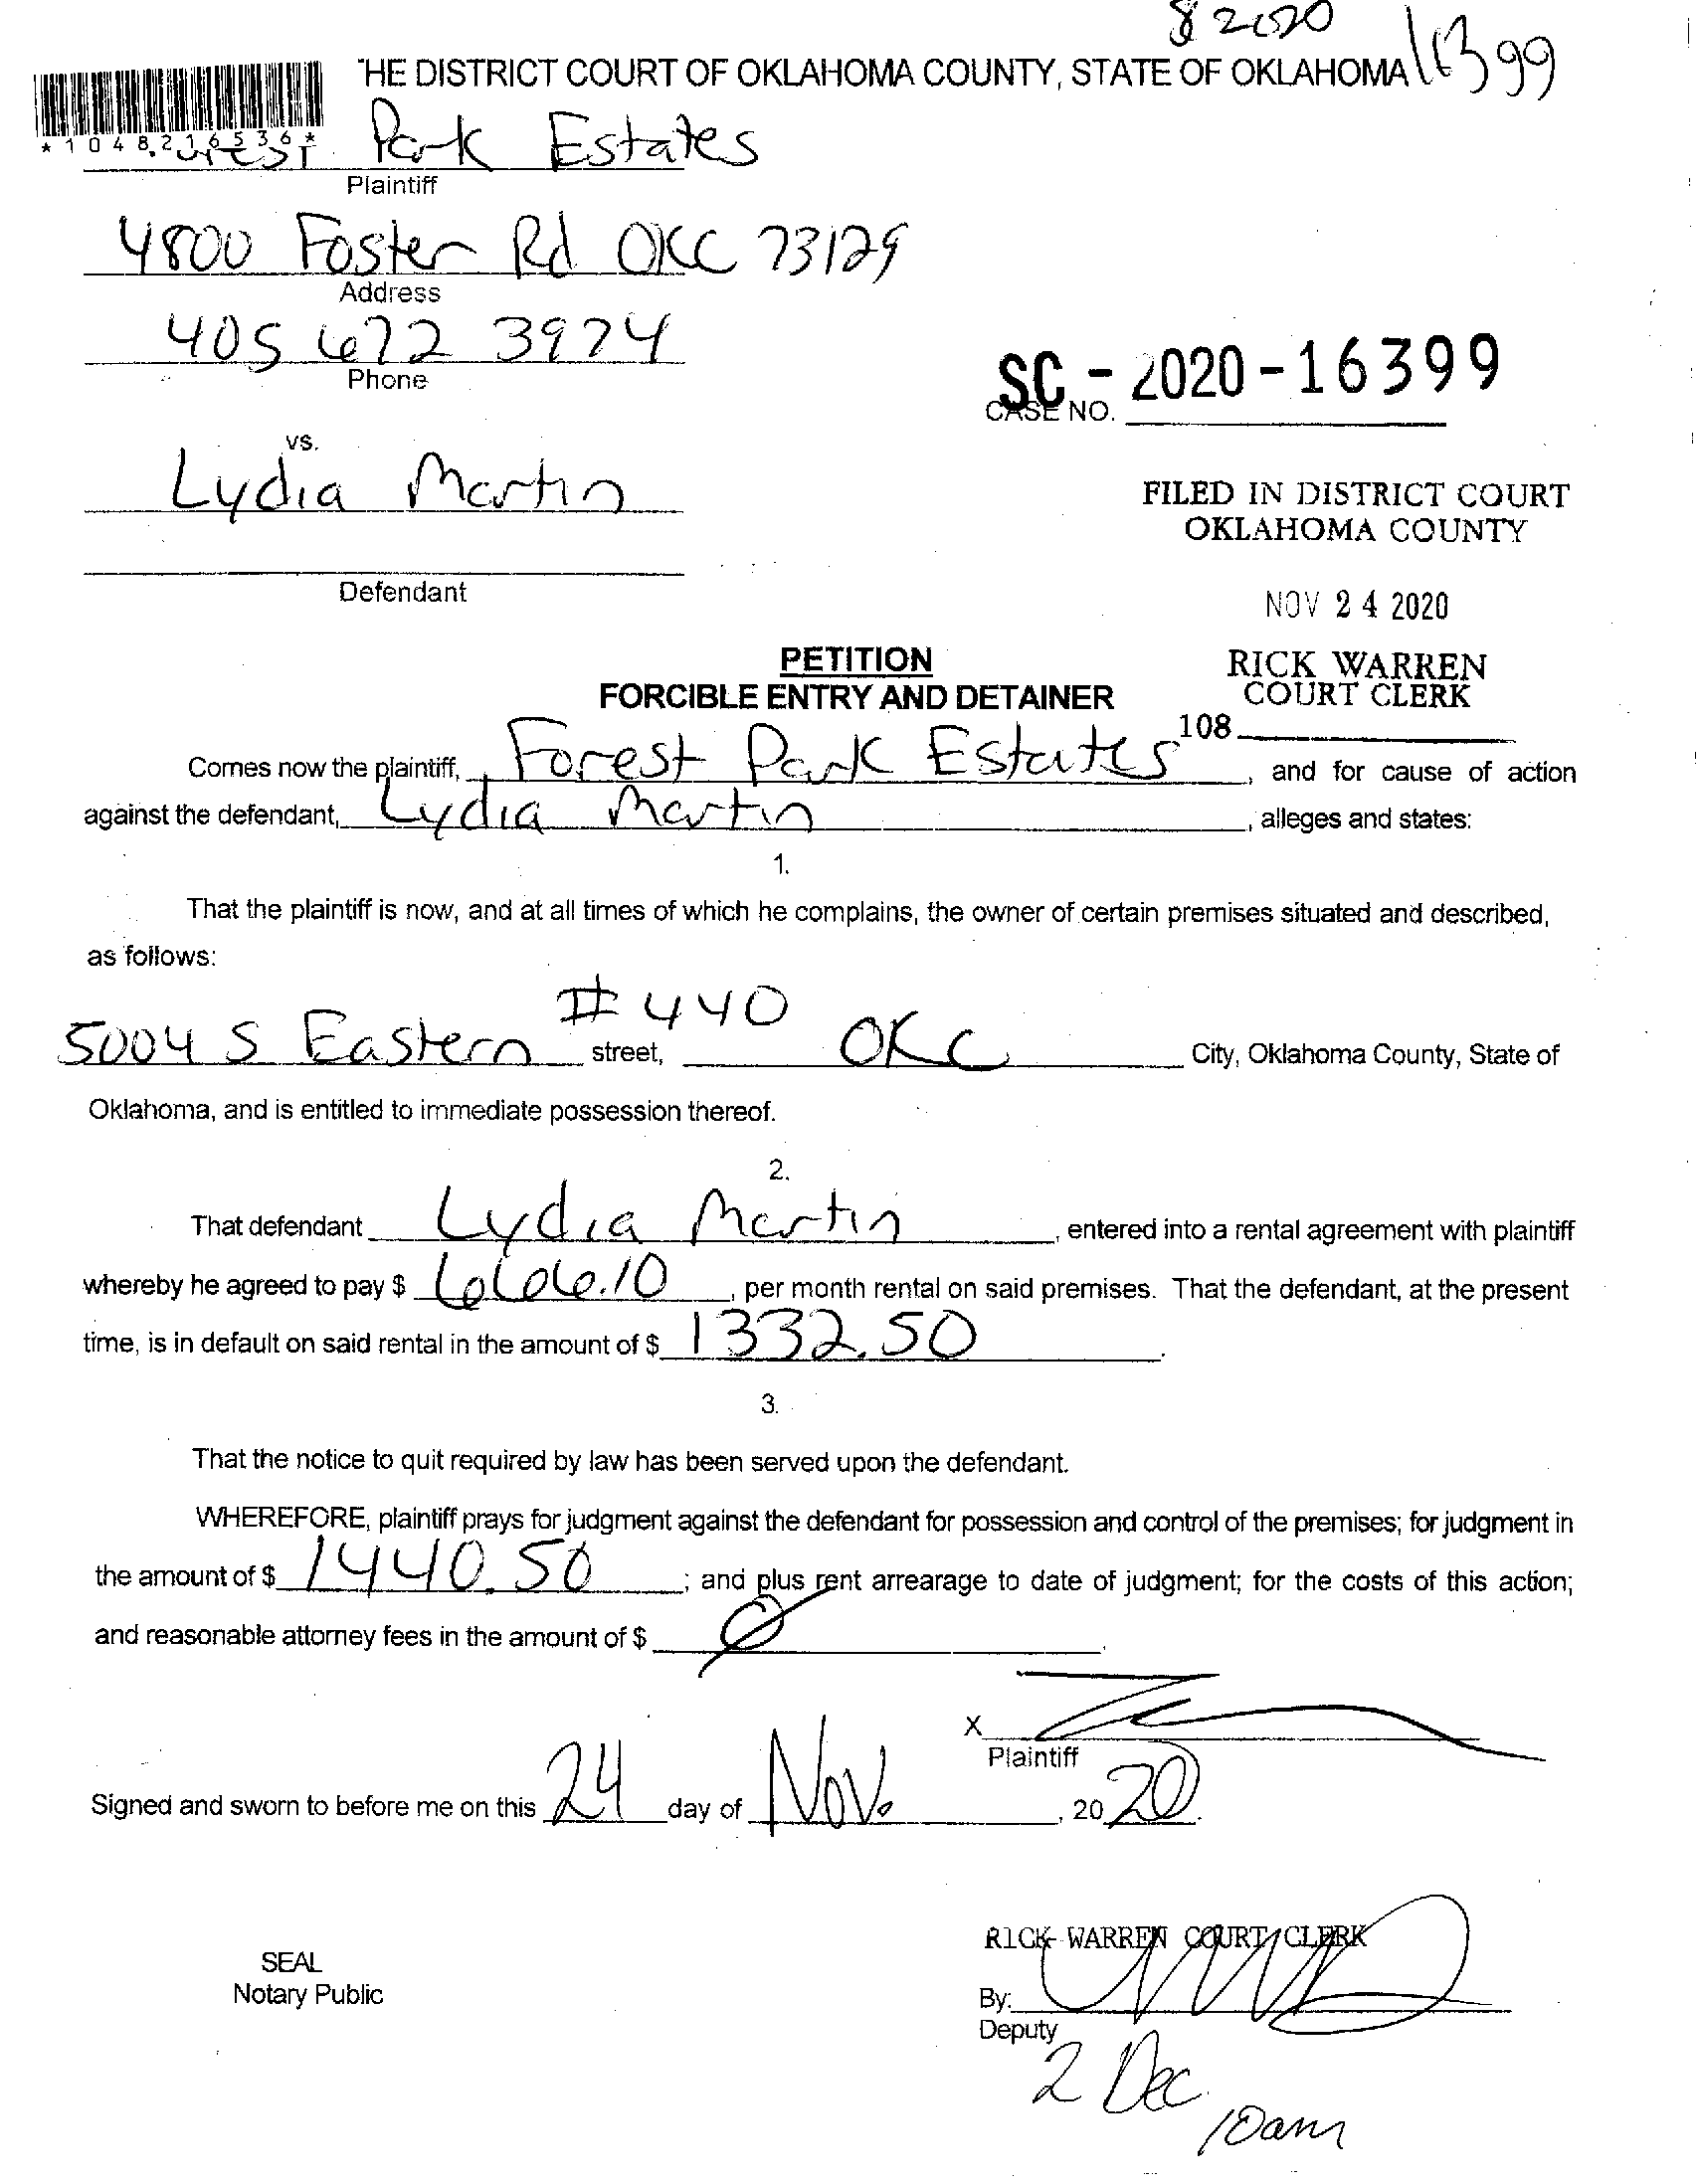 8 2020
16399
THE DISTRICT COURT OF OKLAHOMA COUNTY, STATE OF OKLAHOMA
*1048216536*
Park Estates
Plaintiff
4800 Foster Rd OKC 73129
Address
405 672 3974
Phone
SC - 2020-16399
CASE NO.
vs.
Lydia Martin
FILED IN DISTRICT COURT
OKLAHOMA COUNTY
Defendant
NOV 24 2020
PETITION
RICK WARREN
FORCIBLE ENTRY AND DETAINER
COURT CLERK
108
Comes now the plaintiff, Forest Park Estates, and for cause of action
against the defendant, Lydia Martin, alleges and states:
1.
That the plaintiff is now, and at all times of which he complains, the owner of certain premises situated and described,
as follows:
5004 S Eastern #440 street, OKC City, Oklahoma County, State of
Oklahoma, and is entitled to immediate possession thereof.
2.
That defendant Lydia Martin, entered into a rental agreement with plaintiff
whereby he agreed to pay $ 666.10, per month rental on said premises. That the defendant, at the present
time, is in default on said rental in the amount of $ 1332.50.
3.
That the notice to quit required by law has been served upon the defendant.
WHEREFORE, plaintiff prays for judgment against the defendant for possession and control of the premises; for judgment in
the amount of $ 1440.50; and plus rent arrearage to date of judgment; for the costs of this action;
and reasonable attorney fees in the amount of $ 0.
X
Plaintiff
Signed and sworn to before me on this 24 day of Nov., 2020.
RICK WARREN COURT CLERK
SEAL
Notary Public
By:
Deputy
2 Dec.
10am